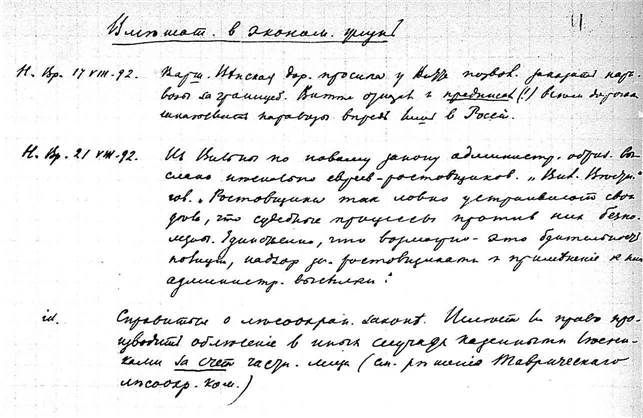 Вмешат. в эконом. функц
11
Н. Вр. 17 VIII. 92. Варш. Венская дор. просила у Витте позвол. заказать паро
возы за границей. Витте отказал и предписал (!) всем дорогам
заказывать паровозы впредь в Россiи.
Н. Вр. 21 VIII. 92. Из Вильны по новому закону администр. образ. вы
слано несколько евреев-ростовщиков. „Вил. Вестн."
гов. „Ростовщики так ловко устраивают свои
дела, что судебные процессы против них безпо
лезны. Единственно, что возможно - это бдительность
полиции, надзор за ростовщиками и применение к ним
администр. высылки."
id. Справиться о лесоохран. законе. Имеют ли право про-
изводить облесение в иных случаях казенными лесни-
ками за счет частн. лица (см. решение Таврического
лесоохр. ком.)